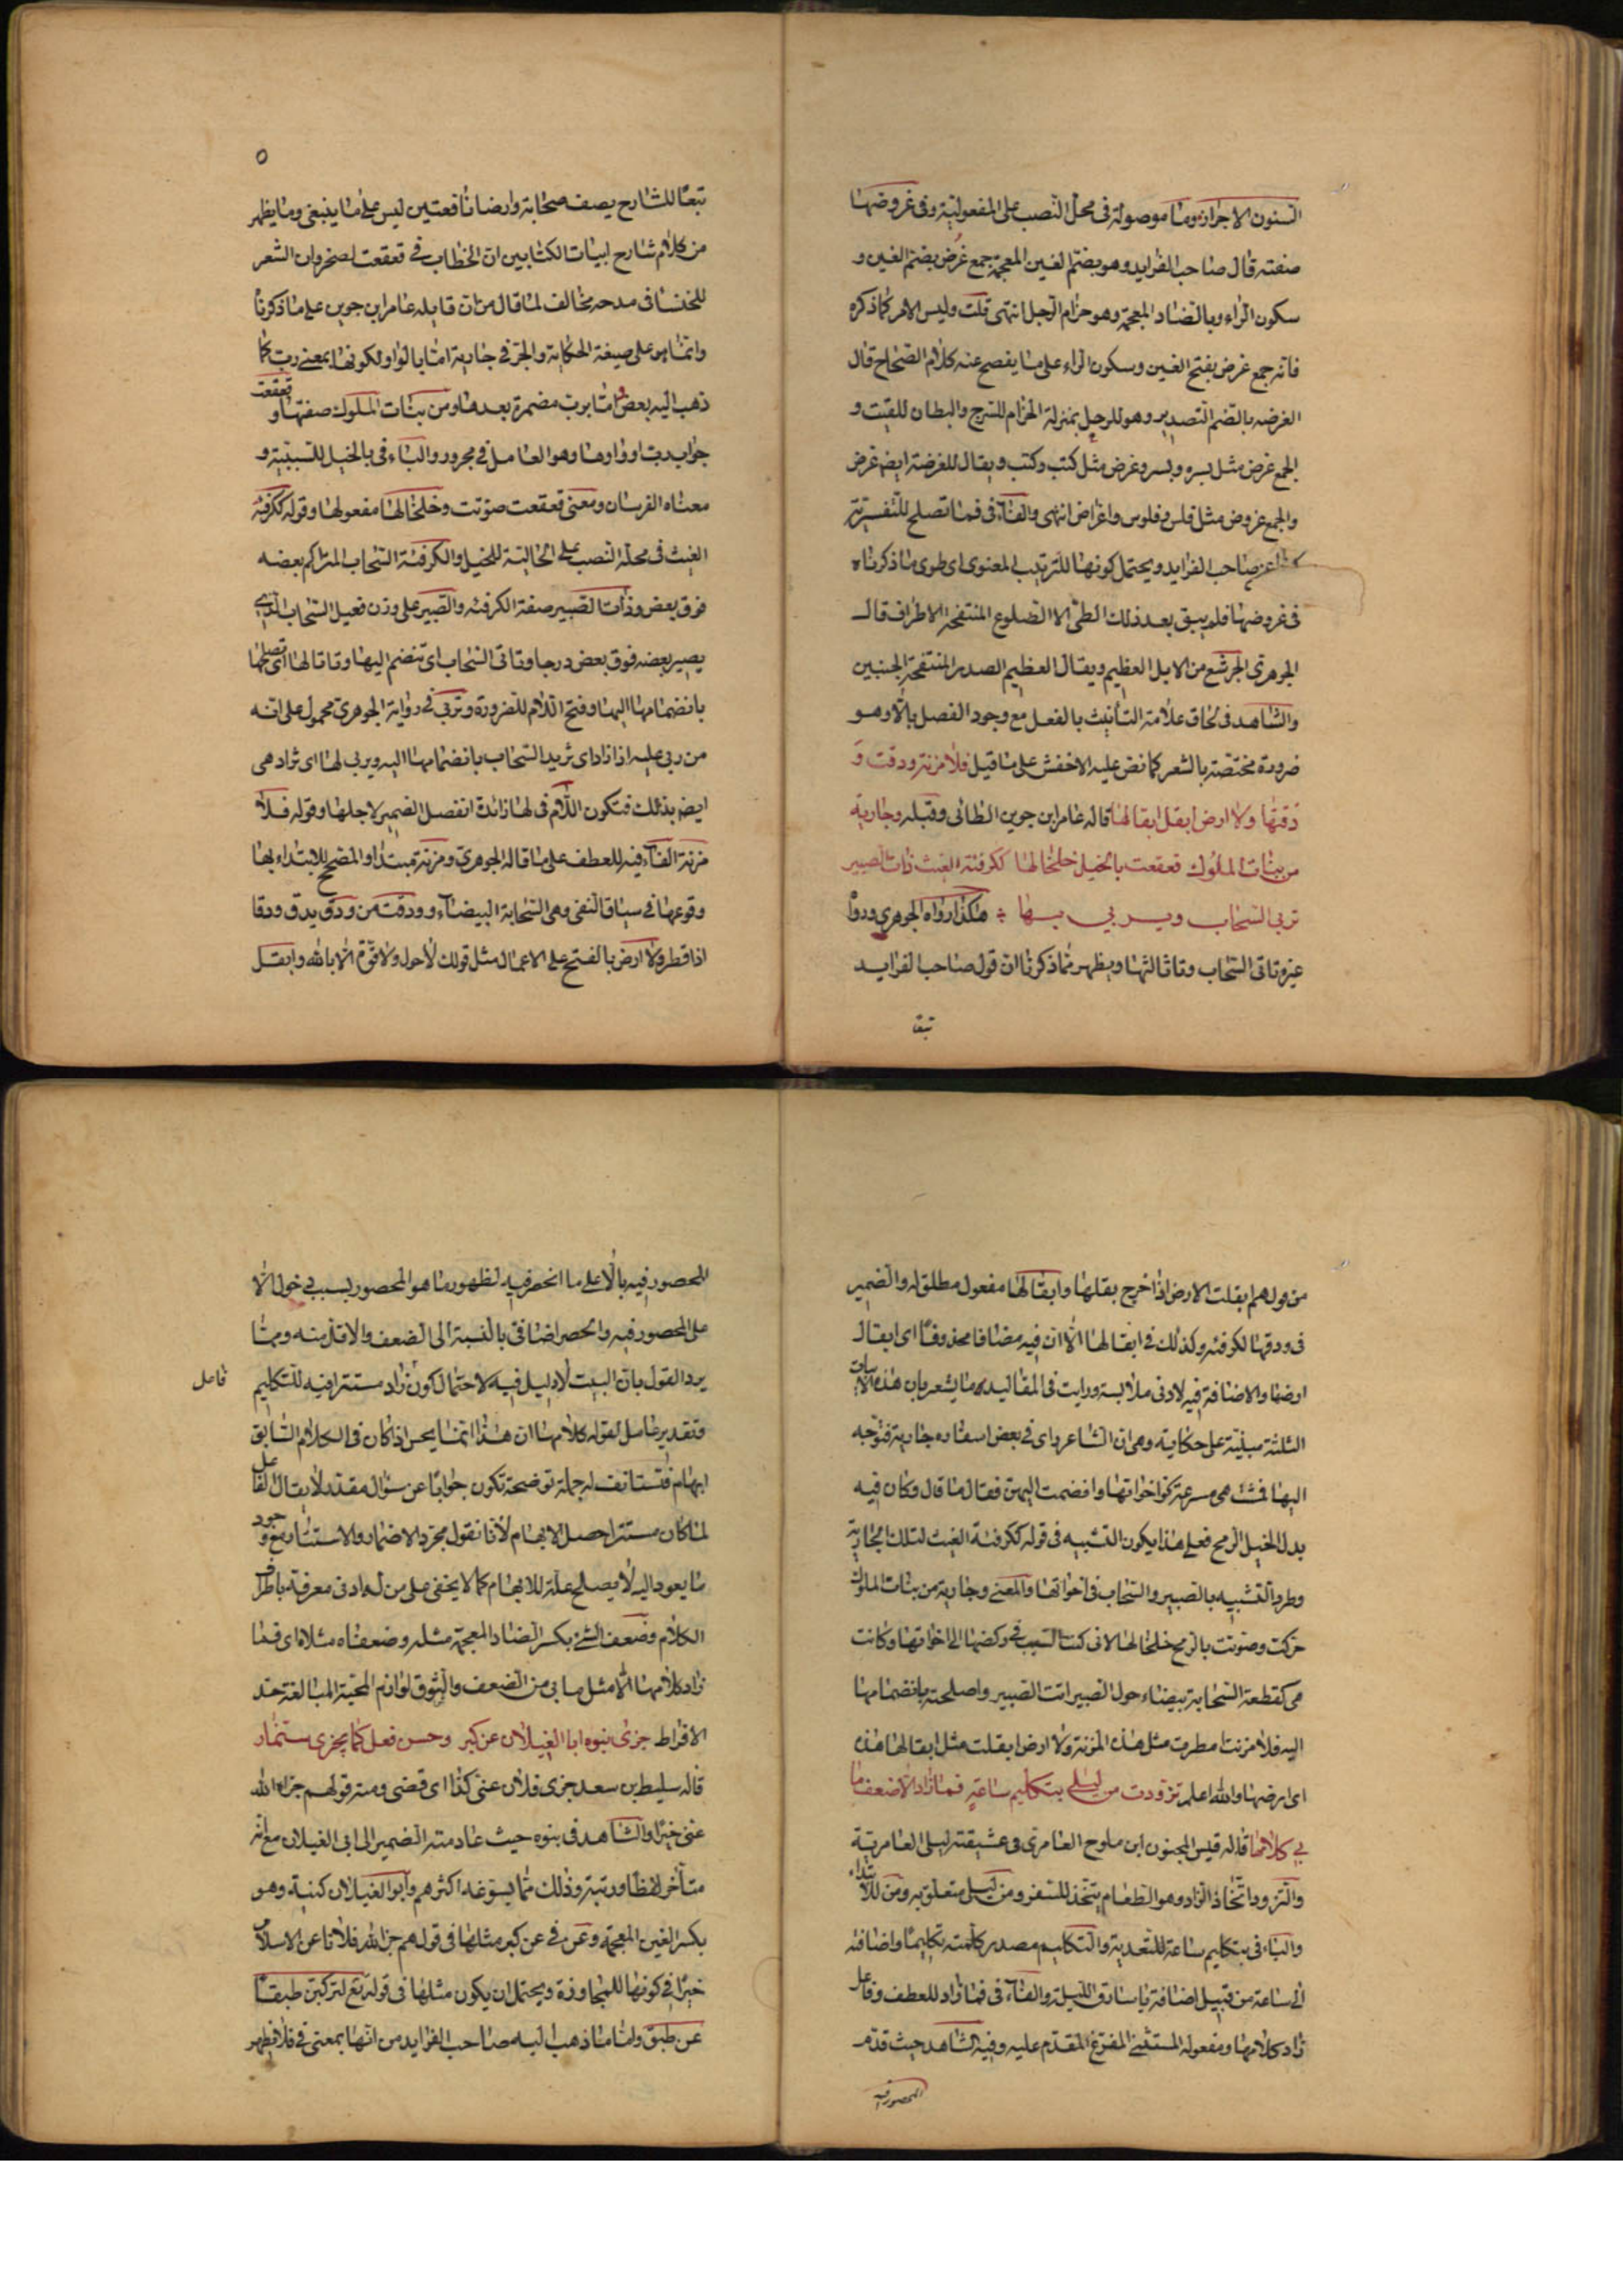 السنون الاجراز وما موصولة في محل النصب على المفعولية وفي غروضها
صفته قال صاحب الفرايد وهو بضم الغين المعجمة جمع غرض بضم الغين و
سكون الراء وبالضاد المعجمة وهو حزام الرجل انتهى قلت وليس الامر كما ذكره
فانه جمع غرض بفتح الغين وسكون الراء على ما يفصح عنه كلام الصحاح قال
الغرضه بالضم التصدير وهو للرحل بمنزلة الحزام للسرج والبطان للقتب و
الجمع غرض مثل بسره وبسر وغرض مثل كتب وكتب ويقال للغرضة ايضم غرض
والجمع غروض مثل فلس وفلوس واغراض انتهى والفاء في فما تصلح للتفسيرية
صاحب الفرايد ويحتمل كونها للترتيب المعنوى اى طوى ما ذكرناه
في غروضها فلم يبق بعد ذلك الطى الا الضلوع المنتفحة الاطراف قال
الجوهرى الجرشع من الابل العظيم ويقال العظيم الصدر المنتفحة الجنبين
والشاهد في لحاق علامة التأنيث بالفعل مع وجود الفصل بالا وهو
ضرورة مختصة بالشعر كما نص عليه الاخفش على ما قيل فلا مزنة ودقت و
دقتها ولا ارض ابقل ابقالها قاله عامر ابن جوين الطائى وقبله وجارية
من بنات الملوك قعقعت بالخيل خلخالها ككرفئة الغيث ذات الصبير
تربى السحاب ويربي بها هكذا رواه الجوهرى وروا
غيره تاتى السحاب وتاتالها ويظهر مما ذكرنا ان قول صاحب الفرايد
تبعا
٥
تبعا للشارح يصف سحابة وارضا نافعتين ليس على ما ينبغى وما يظهر
من كلام شارح ابيات الكتابين ان الخطاب في قعقعت لصخر وان الشعر
للخنسا في مدحه مخالف لما قال من ان قايله عامر ابن جوين على ما ذكرنا
وانما هو على صيغة الحكاية والجر في جارية اما بالواو لكونها بمعنى رب كما
ذهب اليه بعض او اما برب مضمرة بعدها ومن بنات الملوك صفتها و قعقعت
جواب رب او واوها وهو العامل في مجرور والباء في بالخيل للسببية و
معناه الفرسان ومعنى قعقعت صوتت وخلخالها مفعولها وقوله ككرفئة
الغيث في محل النصب على الحالية للخيل والكرفئة السحاب المتراكم بعضه
فوق بعض وذات الصبير صفة الكرفئه والصبير على وزن فعيل السحاب الذى
يصير بعضه فوق بعض درجا وتاتى السحاب اى تنضم اليها وتاتالها اى تصلحها
بانضمامها اليها وفتح اللام للضرورة وتربى في رواية الجوهرى محمول على انه
من ربى عليه اذا زاد اى تزيد السحاب بانضمامها اليه ويربى لها اى تزاد هى
ايضم بذلك فتكون اللام في لها زائدة انفصل الضمير لاجلها وقوله فلا
مزنة الفاء فيه للعطف على ما قاله الجوهرى ومزنة مبتداو المصحح للابتداء بها
وقوعها في سياق النفى وهى السحابة البيضاء وودقت من ودق يدق ودقا
اذا قطر ولا ارض بالفتح على الاعمال مثل قولك لاحول ولا قوة الا بالله وابقل
من قولهم ابقلت الارض اذا خرج بقلها وابقالها مفعول مطلق له والضمير
في ودقها لكرفئه وكذلك في ابقالها الا ان فيه مضافا محذوفا اى ابقال
ارضها والاضافة فيه لادنى ملابسة ورايت في المقاليد ما يشعر بان هذه الابيات
الثلثة مبنية على حكاية وهى ان الشاعر راى في بعض اسفاره جارية فتوجه
اليها فمشت هى مسرعة نحو اخواتها وانضمت اليهن فقال ما قال وكان فيه
بدل الخيل الرمح فعلى هذا يكون التشبيه في قوله ككرفئة الغيث لتلك الجارية
وطرد التشبيه بالصبير والسحاب في اخواتها والمعنى وجارية من بنات الملوك
حركت وصوتت بالرمح خلخالها لانى كنت السبب في ركضها الى اخواتها وكانت
هى كقطعة السحابة بيضاء حول الصبير اتت الصبير واصلحته بانضمامها
اليه فلا مزنت امطرت مثل هذه المزنة ولا ارض ابقلت مثل ابقالها هذه
اى ارضها والله اعلم تزودت من ليلى بتكليم ساعة فما زاد الا ضعف ما
بي كلامها قاله قيس المجنون ابن ملوح العامرى في عشيقته ليلى العامرية
والتزود اتخاذ الزاد وهو الطعام يتخذ للسفر ومن ليلى متعلق به ومن للابتداء
والباء في بتكليم ساعة للتعدية والتكليم مصدر كلمته تكليما واضافته
الى ساعة من قبيل اضافة يا سارق الليلة والفاء في فما زاد للعطف وفاعل
زاد كلامها ومفعوله المستثنى المفرغ المقدم عليه وفيه الشاهد حيث قدم
المحصور فيه
المحصور فيه بالا على ما انحصر فيه لظهور ما هو المحصور بسبب دخول الا
على المحصور فيه والحصر اضافي بالنسبة الى الضعف والاقل منه ومما
يرد القول بان البيت لا دليل فيه لاحتمال كون زاد مستترا فيه للتكليم
فاعل
وتقدير عامل لقوله كلامها ان هذا انما يحسن اذا كان في الكلام السابق
ابهام فتستانف له جملة توضحه تكون جوابا عن سؤال مقدر لا يقال الفاعل
لما كان مستترا حصل الابهام لانا نقول مجرد الاضمار والاستتار مع وجود
ما يعود اليه لا يصلح علة للابهام كما لا يخفى على من له ادنى معرفة باطراف
الكلام وضعف الشئ بكسر الضاد المعجمة مثله وضعفاه مثلاه اى فما
زاد كلامها الا مثل ما بى من الضعف والشوق لوازم المحبة المبالغة حد
الافراط جزى بنوه ابا الغيلان عن كبر وحسن فعل كما يجزى سنمار
قاله سليط بن سعد جزى فلان عنى كذا اى قضى ومنه قولهم جزاه الله
عنى خيرا والشاهد في بنوه حيث عاد منه الضمير الى ابى الغيلان مع انه
متأخر لفظا ورتبة وذلك مما يسوغه اكثرهم وابو الغيلان كنية وهو
بكسر الغين المعجمة وعن في عن كبر مثلها في قولهم جزا الله فلانا عن الاسلام
خيرا في كونها للمجاوزة ويحتمل ان يكون مثلها في قوله تع لتركبن طبقا
عن طبق واما ما ذهب اليه صاحب الفرايد من انها بمعنى في فلا يظهر